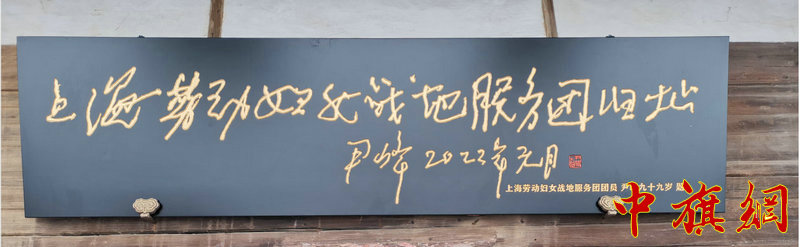 上海劳动妇女战地服务团旧址
尹峰 2022年元月
上海劳动妇女战地服务团团员 尹峰九十九岁 题
中旗網